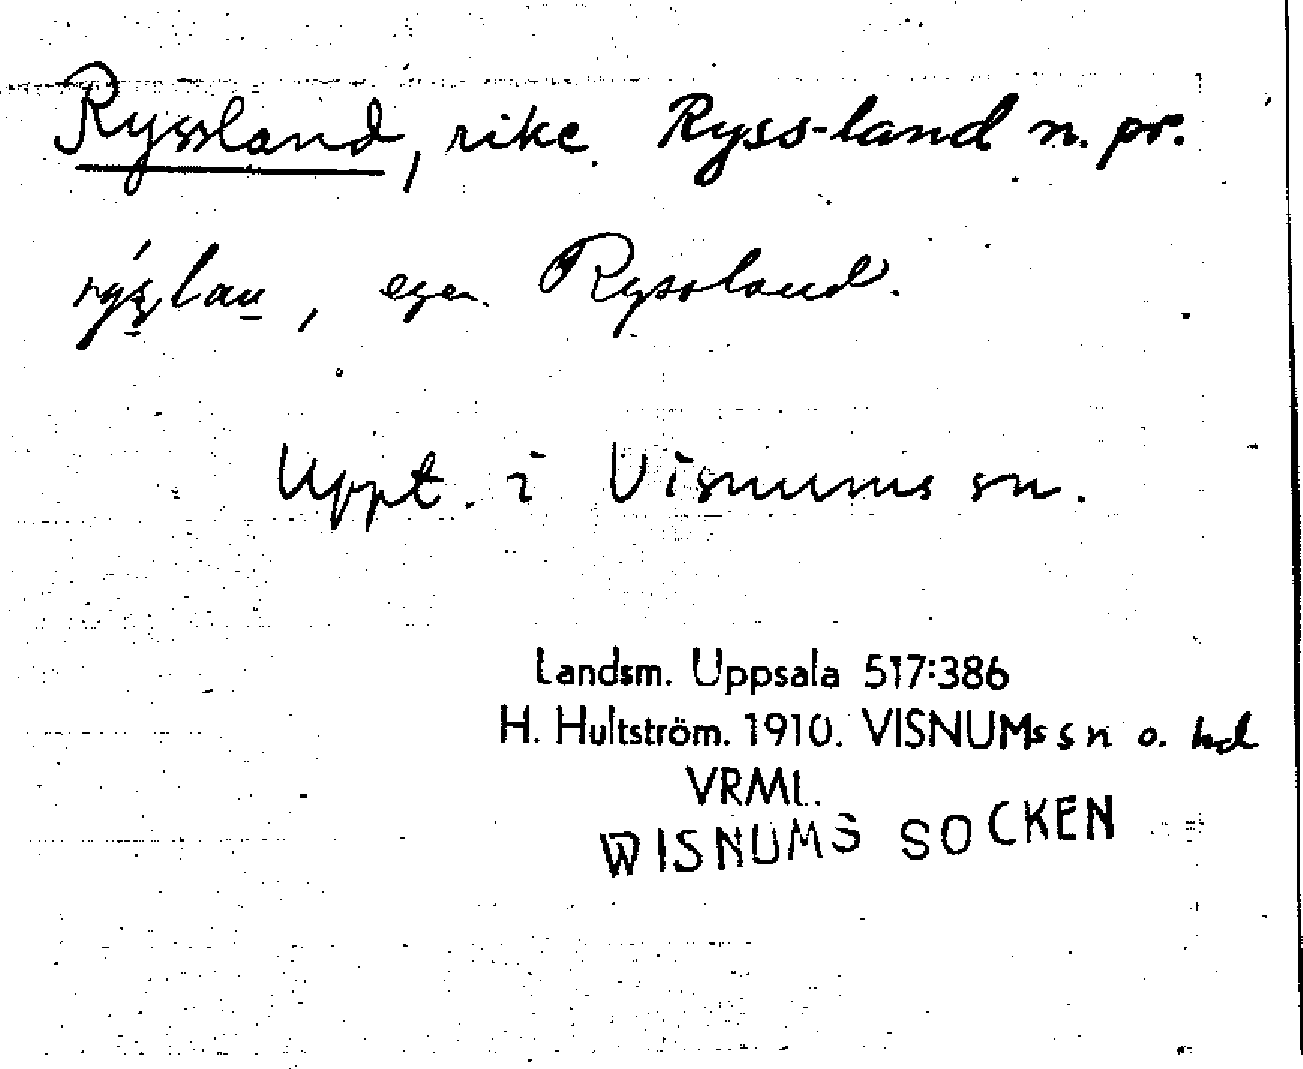 Ryssland, rike. Ryss-land n. pr.
rýslan, egen. Ryssland.
Uppt. i Visnums sn.
Landsm. Uppsala 517:386
H. Hultström. 1910. VISNUMs sn o. hd
VRML.
WISNUMS SOCKEN